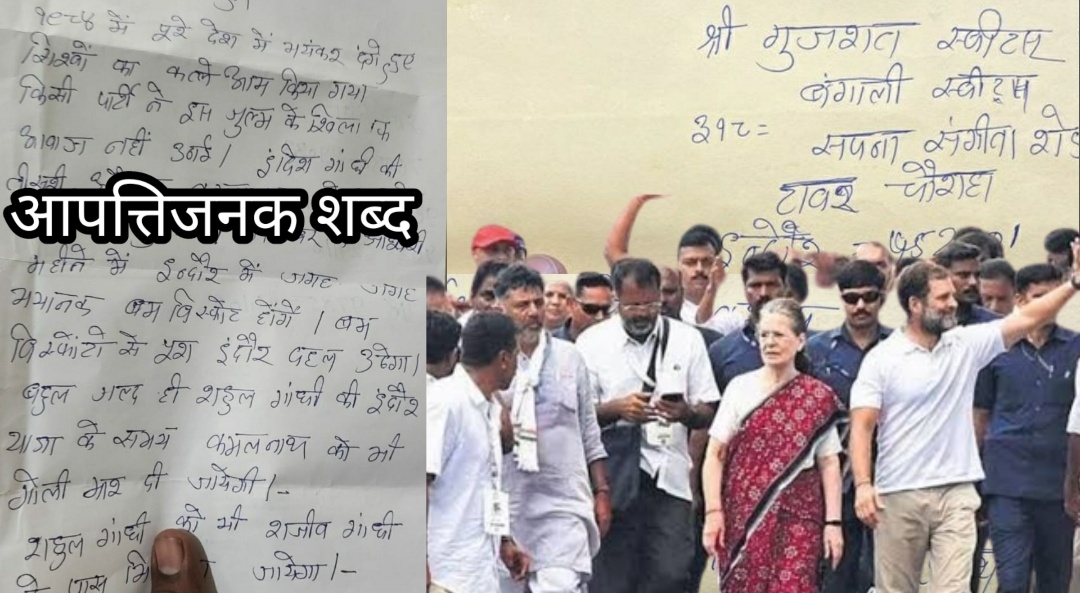 १९८४ में पूरे देश में भयंकर दंगे हुए
सिखों का कत्ले आम किया गया
किसी पार्टी ने इस जुल्म के खिलाफ
आवाज नहीं उठाई। इंदिरा गांधी की
आपत्तिजनक शब्द
महीने में इन्दौर में जगह जगह
भयानक बम विस्फोट होंगें। बम
विस्फोटों से पूरा इंदौर दहल उठेगा।
बहुत जल्द ही राहुल गांधी की इंदौर
यात्रा के समय कमलनाथ को भी
गोली मार दी जायेगी।-
राहुल गांधी को भी राजीव गांधी
के पास जायेगा।-
श्री गुजरात स्वीटस
बंगाली स्वीट्स
३१८=
सपना संगीता रोड
टावर चौराहा
इन्दौर